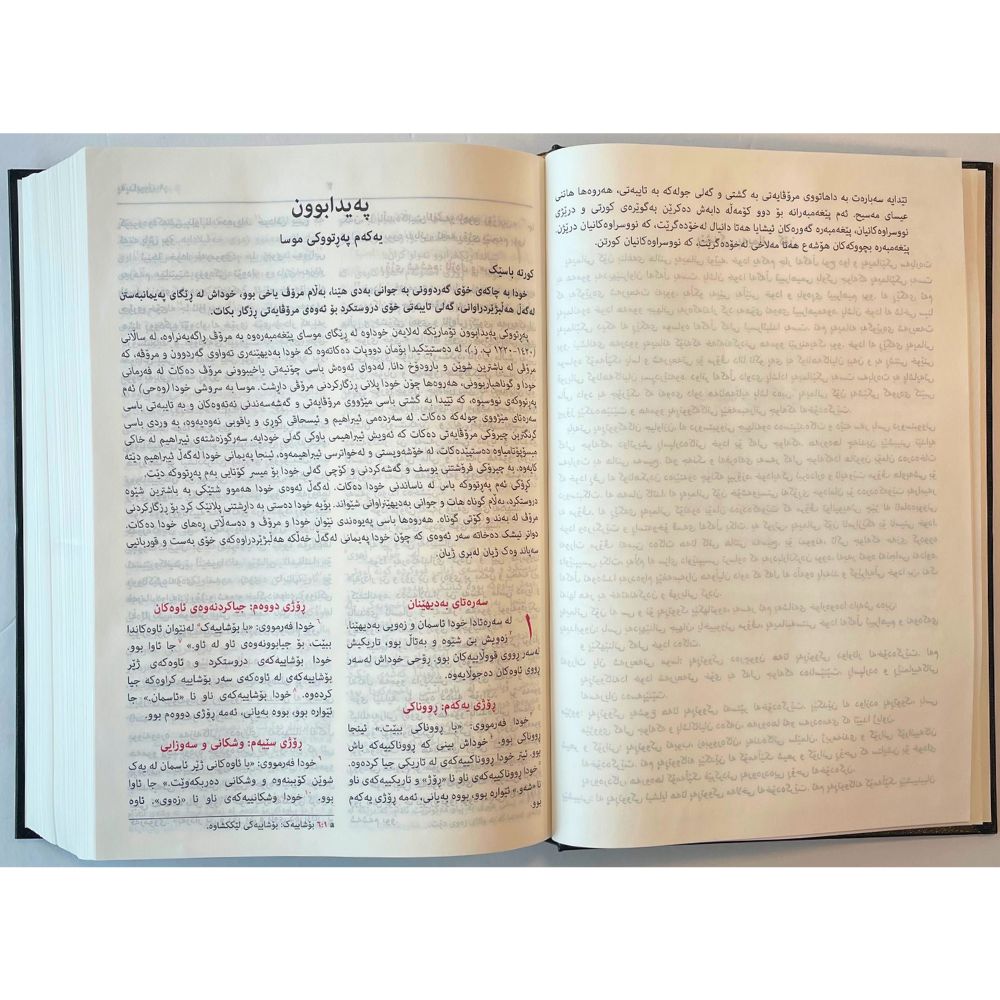 تێدایە سەبارەت بە داهاتووی مرۆڤایەتی بە گشتی و گەلی جولەکە بە تایبەتی، هەروەها هاتنی
عیسای مەسیح. ئەم پێغەمبەرانە بۆ دوو کۆمەڵە دابەش دەکرێن بەگوێرەی کورتی و درێژی
نووسراوەکانیان، پێغەمبەرە گەورەکان ئیشایا هەتا دانیال لەخۆدەگرێت، کە نووسراوەکانیان درێژن.
پێغەمبەرە بچووکەکان هۆشەع هەتا مەلاخی لەخۆدەگرێت، کە نووسراوەکانیان کورتن.
پەیدابوون
یەکەم پەرتووکی موسا
کورتە باسێک
خودا بە چاکەی خۆی گەردوونی بە جوانی بەدی هێنا، بەڵام مرۆڤ یاخی بوو، خوداش لە ڕێگای پەیمانبەستن
لەگەڵ هەڵبژێردراوانی، گەلی تایبەتی خۆی دروستکرد بۆ ئەوەی مرۆڤایەتی ڕزگار بکات.
پەرتووکی پەیدابوون تۆمارێکە لەلایەن خوداوە لە ڕێگای موسای پێغەمبەرەوە بە مرۆڤ ڕاگەیەنراوە، لە ساڵانی
(١٤٢٠-١٢٢٠ پ. ز.)، لە دەستپێکیدا بۆمان دووپات دەکاتەوە کە خودا بەدیهێنەری تەواوی گەردوون و مرۆڤە، کە
مرۆڤی لە باشترین شوێن و بارودۆخ دانا. لەدوای ئەوەش باسی چۆنیەتی یاخیبوونی مرۆڤ دەکات لە فەرمانی
خودا و گوناهباربوونی، هەروەها چۆن خودا پلانی ڕزگارکردنی مرۆڤی داڕشت. موسا بە سروشی خودا (وەحی) ئەم
پەرتووکەی نووسیوە، کە تێیدا بە گشتی باسی مێژووی مرۆڤایەتی و گەشەسەندنی نەتەوەکان و بە تایبەتی باسی
سەرەتای مێژووی جولەکە دەکات. لە سەردەمی ئیبراهیم و ئیسحاقی کوڕی و یاقوبی نەوەیەوە، بە وردی باسی
گرنگترین چیرۆکی مرۆڤایەتی دەکات کە ئەویش ئیبراهیمی باوکی گەلی خودایە. سەرگوزەشتەی ئیبراهیم لە خاکی
میسۆپۆتامیاوە دەستپێدەکات، لە خۆشەویستی و لەخواترسی ئیبراهیمەوە، ئینجا پەیمانی خودا لەگەڵ ئیبراهیم دێتە
کایەوە. بە چیرۆکی فرۆشتنی یوسف و گەشەکردنی و کۆچی گەلی خودا بۆ میسر کۆتایی بەم پەرتووکە دێت.
کرۆکی ئەم پەرتووکە باس لە ناساندنی خودا دەکات. لەگەڵ ئەوەی خودا هەموو شتێکی بە باشترین شێوە
دروستکرد، بەڵام گوناه هات و جوانی بەدیهێنراوانی شێواند. بۆیە خودا دەستی بە داڕشتنی پلانێک کرد بۆ ڕزگارکردنی
مرۆڤ لە بەند و کۆتی گوناه. هەروەها باسی پەیوەندی نێوان خودا و مرۆڤ و دەسەڵاتی ڕەهای خودا دەکات.
دواتر تیشک دەخاتە سەر ئەوەی کە چۆن خودا پەیمانی لەگەڵ خەڵکە هەڵبژێردراوەکەی خۆی بەست و قوربانیی
سەپاند وەک ژیان لەبری ژیان.
سەرەتای بەدیهێنان
١ لە سەرەتادا خودا ئاسمان و زەویی بەدیهێنا.
٢ زەویش بێ شێوە و بەتاڵ بوو، تاریکیش
لەسەر ڕووی قووڵاییەکان بوو. ڕۆحی خوداش لەسەر
ڕووی ئاوەکان دەجولایەوە.
ڕۆژی یەکەم: ڕووناکی
٣ خودا فەرمووی: «با ڕووناکی ببێت.» ئینجا
ڕووناکی بوو. ٤ خوداش بینی کە ڕووناکییەکە باش
بوو. ئیتر خودا ڕووناکییەکەی لە تاریکی جیا کردەوە.
٥ خودا ڕووناکییەکەی ناو نا «ڕۆژ» و تاریکییەکەی ناو
نا «شەو.» ئێوارە بوو، بووە بەیانی، ئەمە ڕۆژی یەکەم
بوو.
ڕۆژی دووەم: جیاکردنەوەی ئاوەکان
٦ خودا فەرمووی: «با بۆشاییەک a لەنێوان ئاوەکاندا
ببێت، بۆ جیابوونەوەی ئاو لە ئاو.» ٧ جا ئاوا بوو.
خودا بۆشاییەکەی دروستکرد و ئاوەکەی ژێر
بۆشاییەکەی لە ئاوەکەی سەر بۆشاییە کراوەکە جیا
کردەوە. ٨ خودا بۆشاییەکەی ناو نا «ئاسمان.» جا
ئێوارە بوو، بووە بەیانی، ئەمە ڕۆژی دووەم بوو.
ڕۆژی سێیەم: وشکانی و سەوزایی
٩ خودا فەرمووی: «با ئاوەکانی ژێر ئاسمان لە یەک
شوێن کۆببنەوە و وشکانی دەربکەوێت.» جا ئاوا
بوو. ١٠ خودا وشکانییەکەی ناو نا «زەوی»، ئاوە
a ٦:١ بۆشاییەک: بۆشاییەکی لێککشاوە.